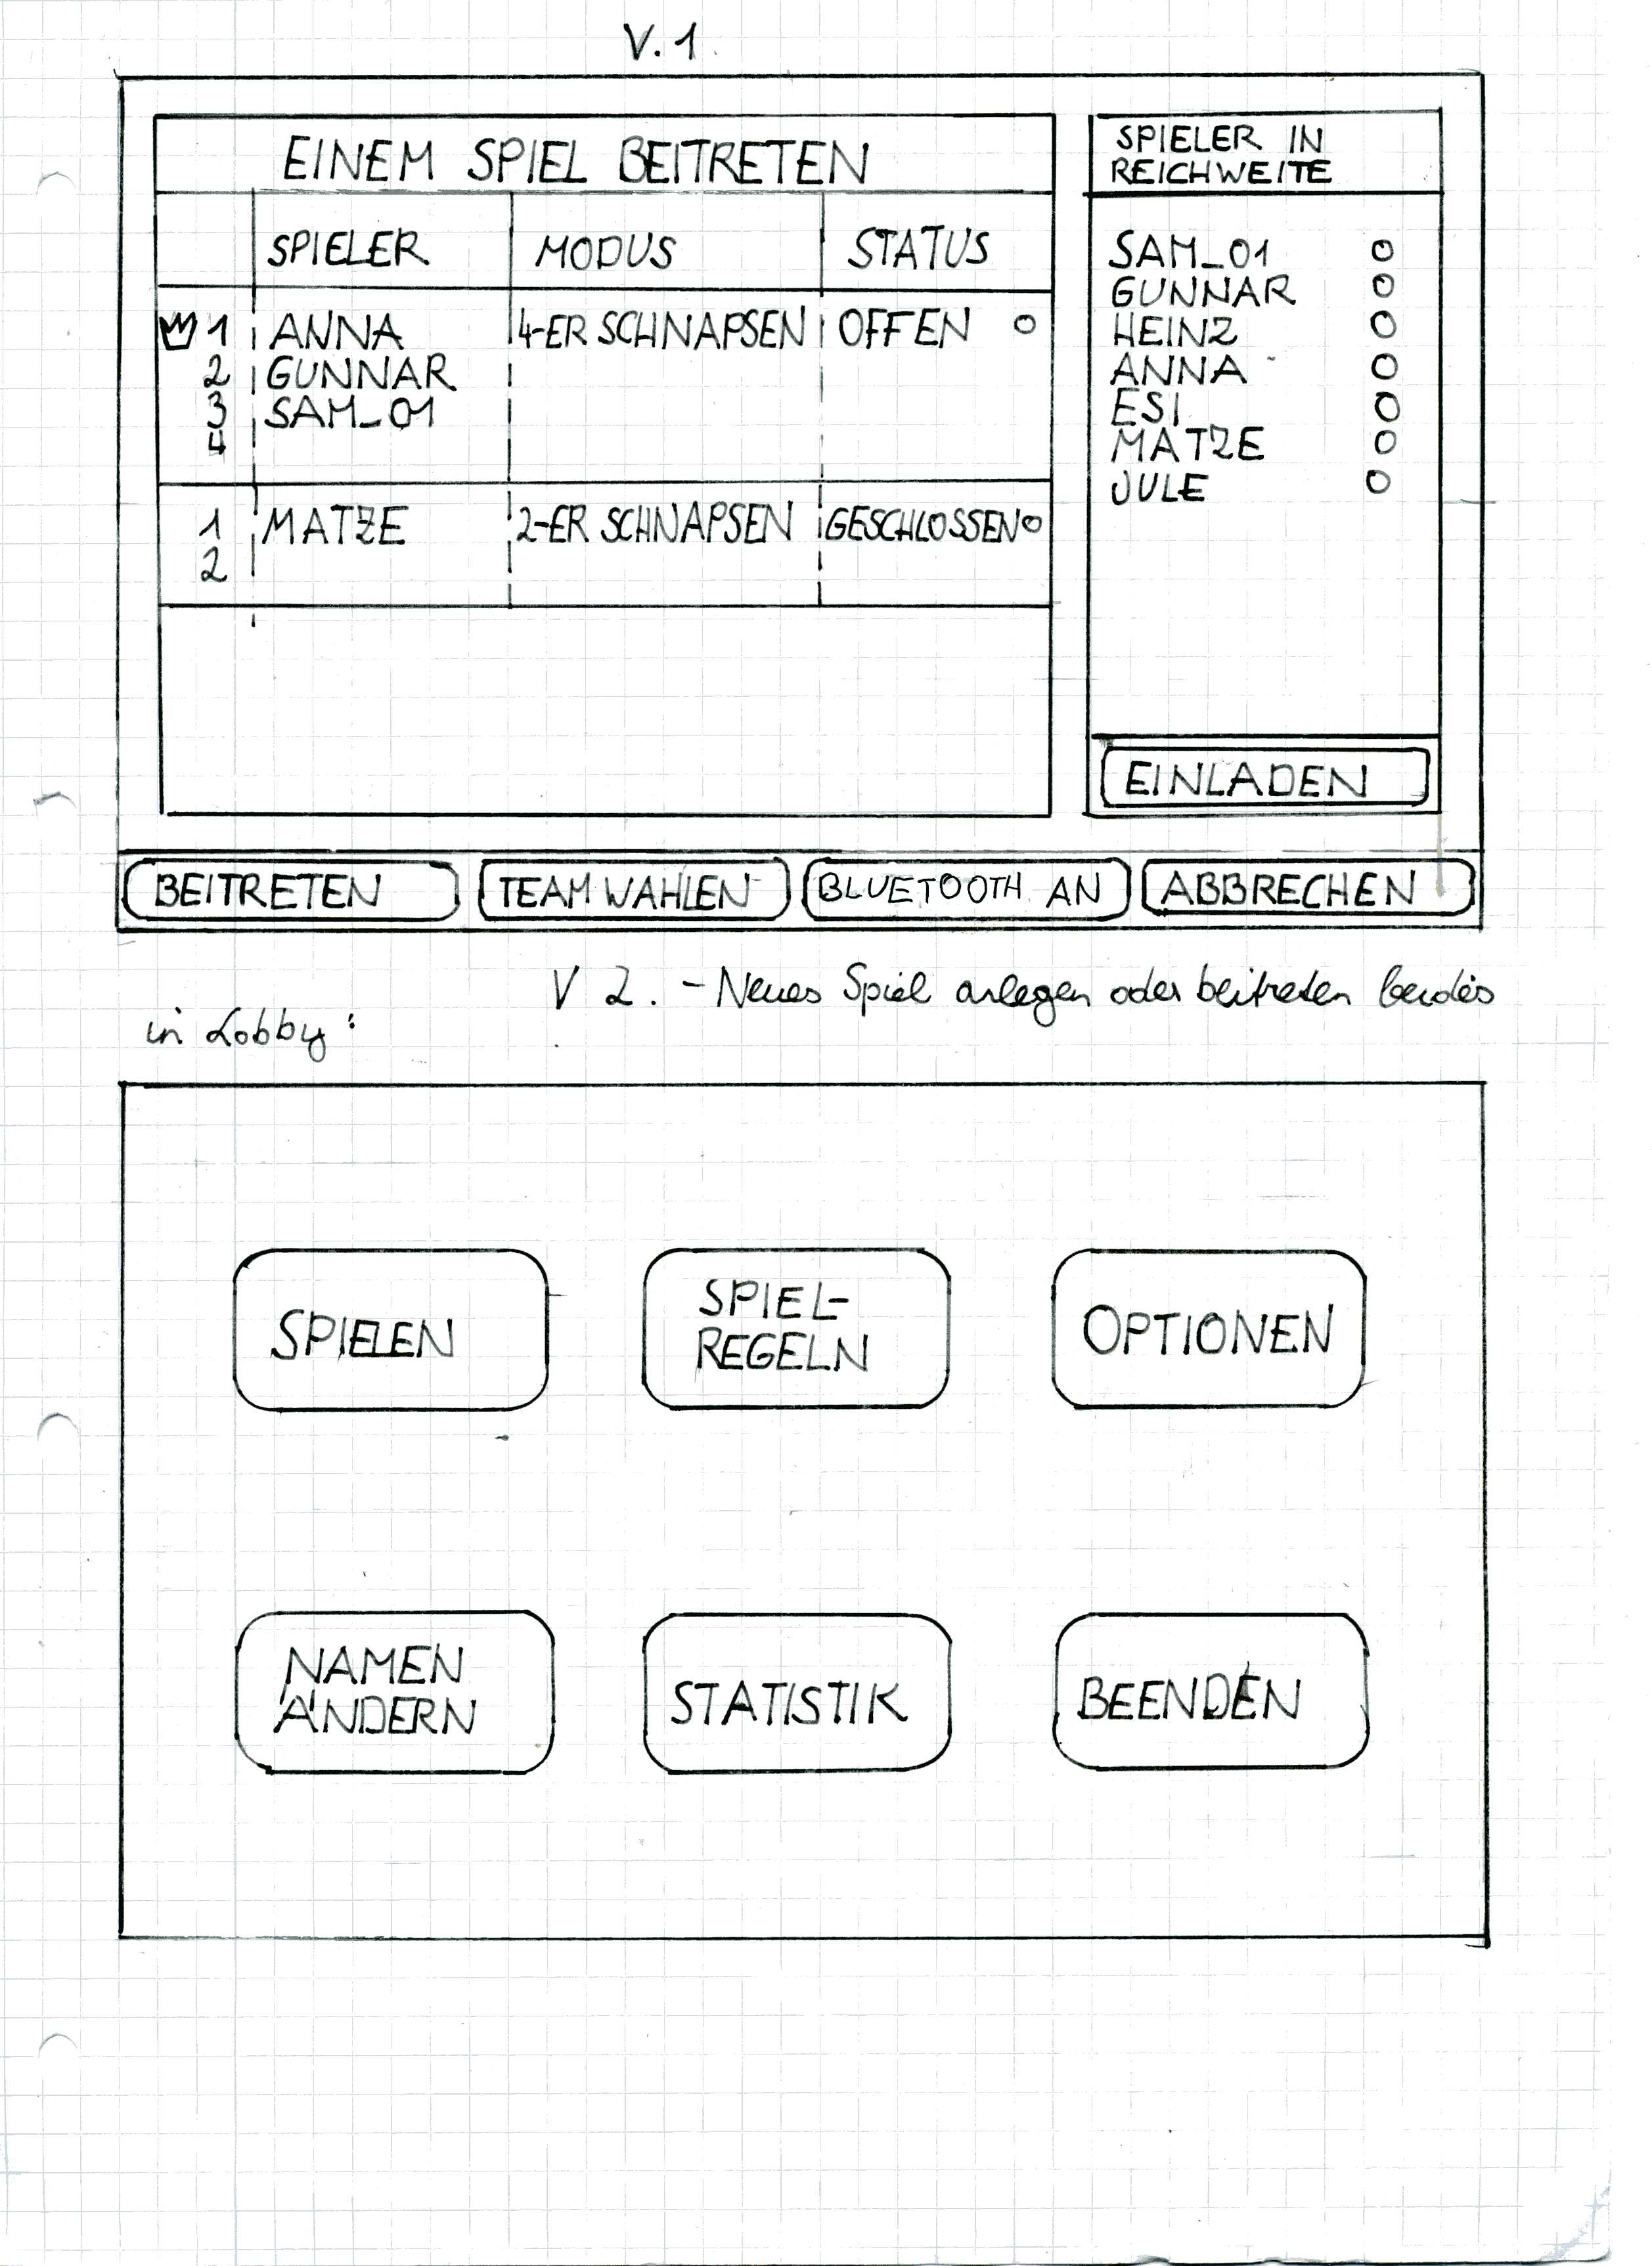 V. 1
EINEM SPIEL BEITRETEN
SPIELER MODUS STATUS
1 ANNA 4-ER SCHNAPSEN OFFEN
2 GUNNAR
3 SAM_01
4
1 MATZE 2-ER SCHNAPSEN GESCHLOSSEN
2
SPIELER IN
REICHWEITE
SAM_01
GUNNAR
HEINZ
ANNA
ESI
MATZE
JULE
EINLADEN
BEITRETEN TEAM WAHLEN BLUETOOTH AN ABBRECHEN
V 2. - Neues Spiel anlegen oder beitreten beides
in Lobby:
SPIELEN
SPIEL-
REGELN
OPTIONEN
NAMEN
ÄNDERN
STATISTIK
BEENDEN